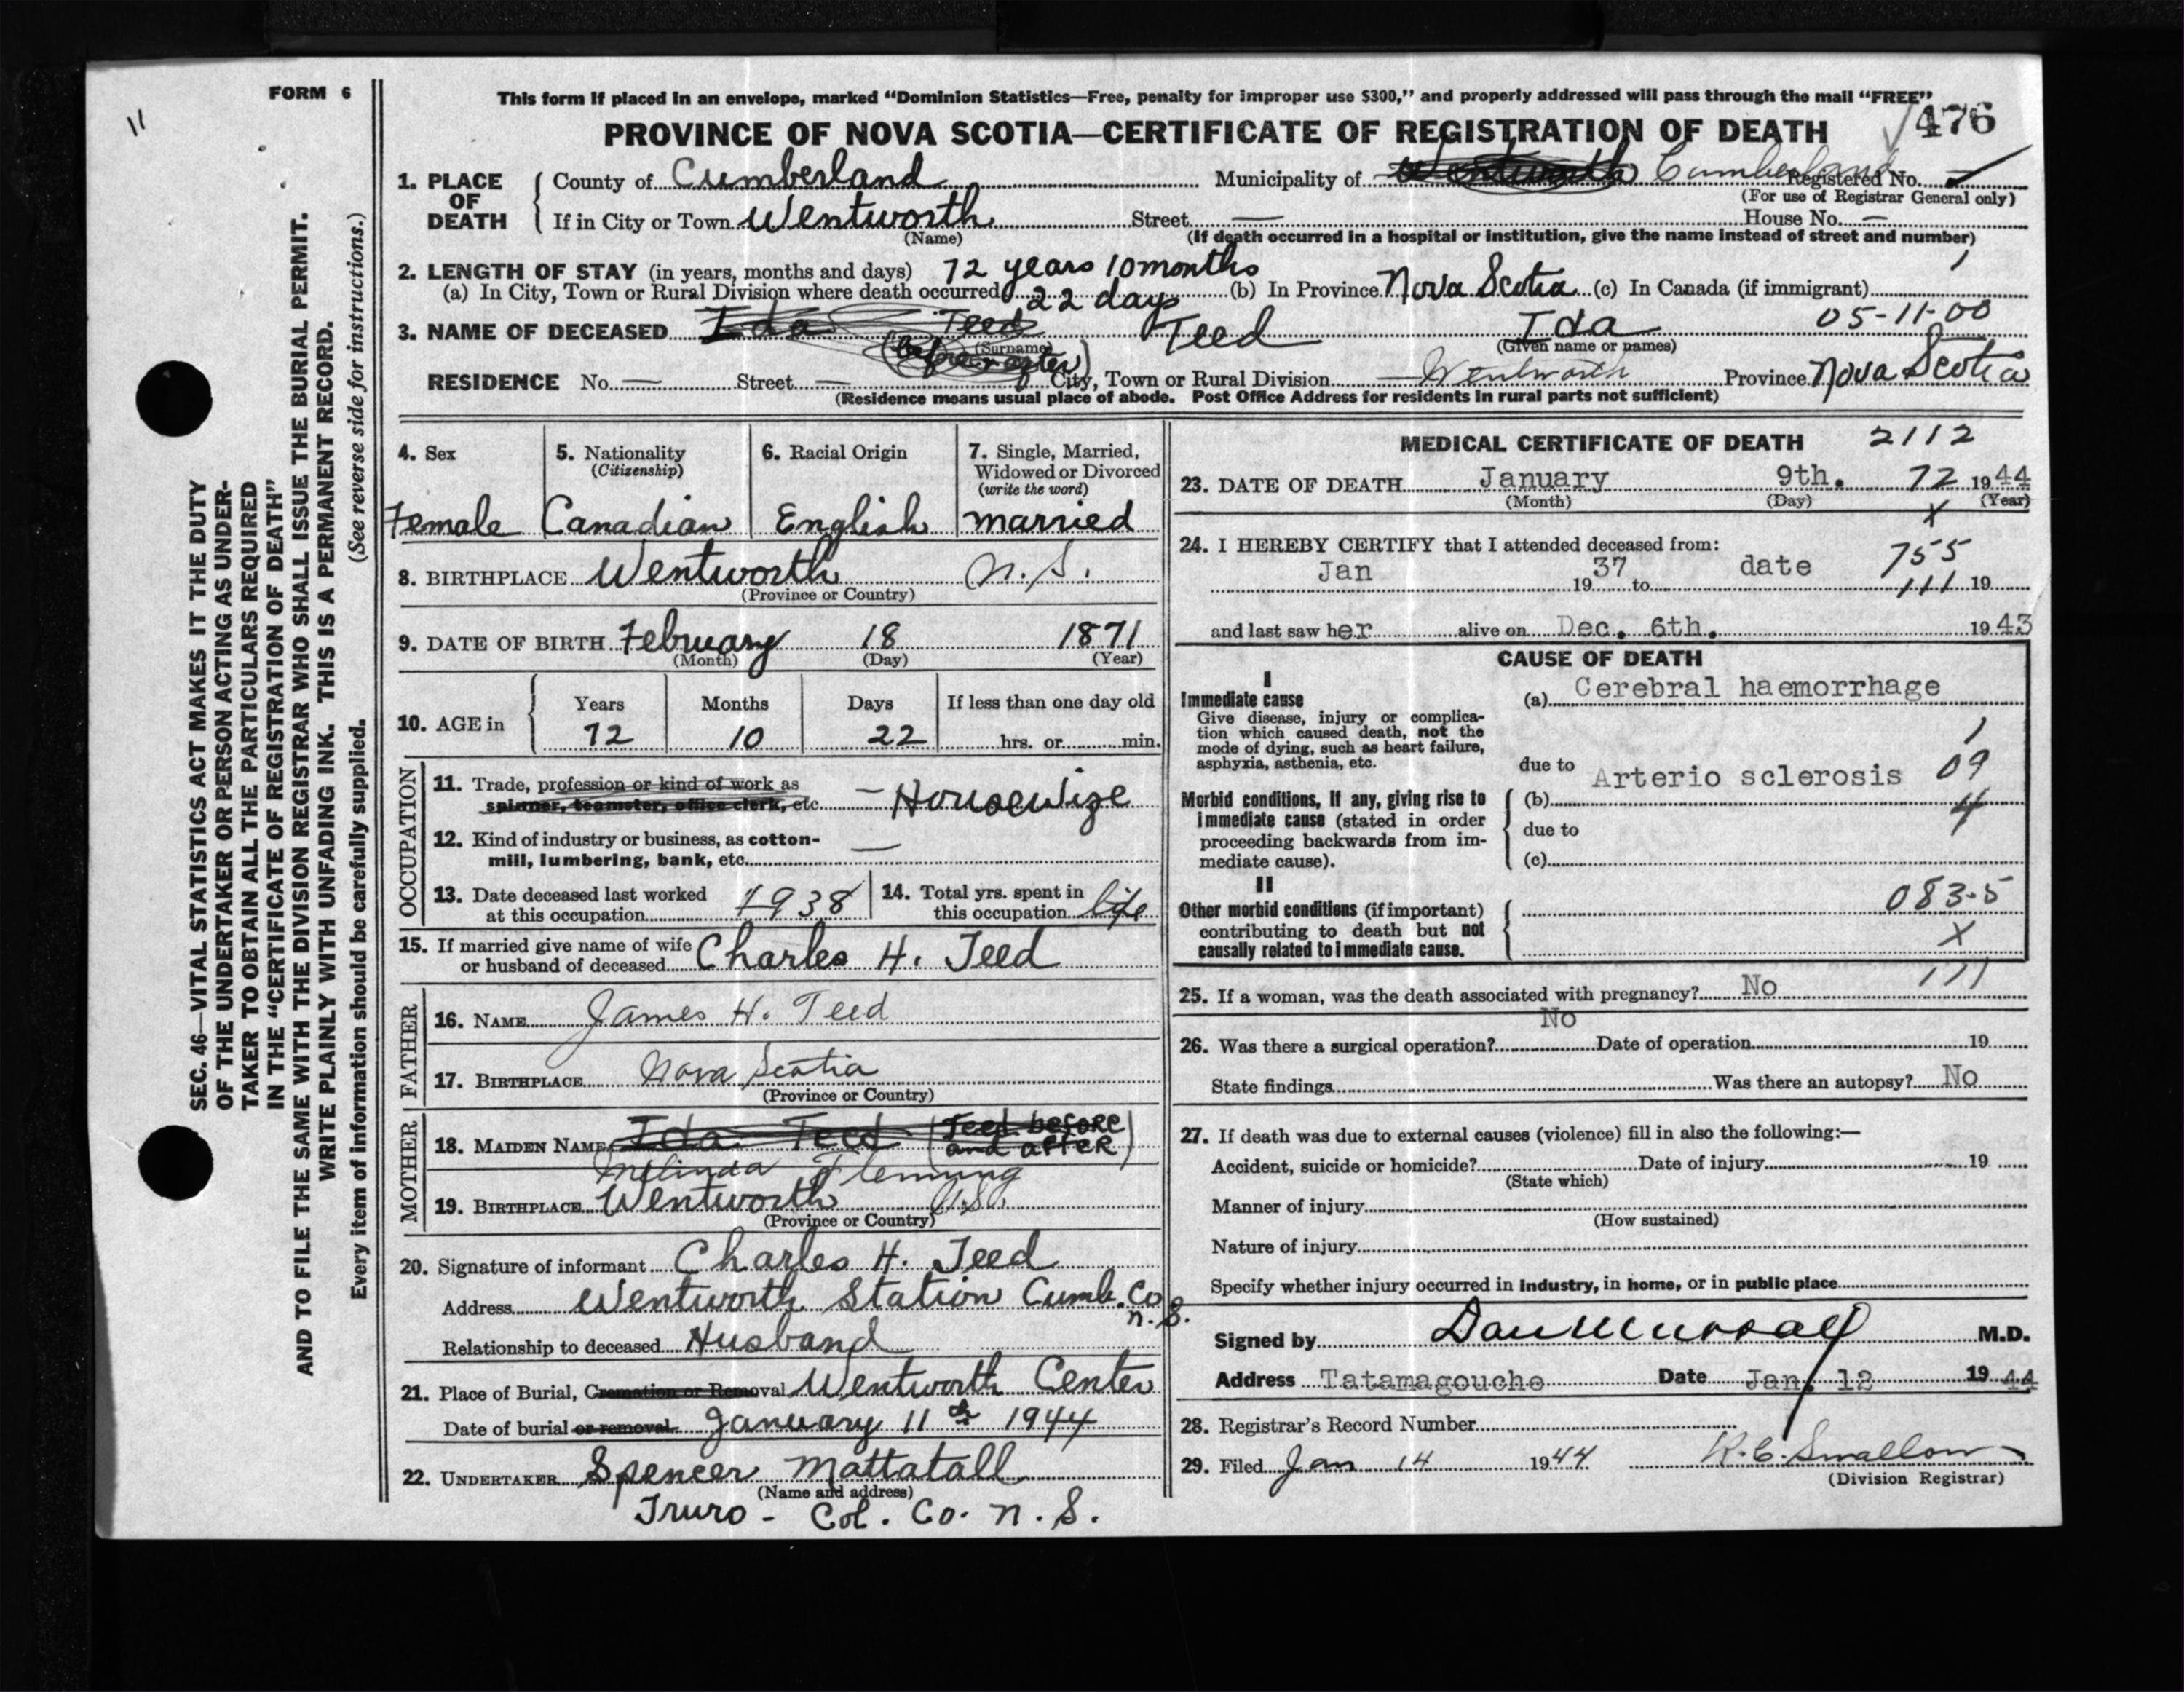 FORM 6
11
SEC. 46—VITAL STATISTICS ACT MAKES IT THE DUTY
OF THE UNDERTAKER OR PERSON ACTING AS UNDER-
TAKER TO OBTAIN ALL THE PARTICULARS REQUIRED
IN THE "CERTIFICATE OF REGISTRATION OF DEATH"
AND TO FILE THE SAME WITH THE DIVISION REGISTRAR WHO SHALL ISSUE THE BURIAL PERMIT.
WRITE PLAINLY WITH UNFADING INK. THIS IS A PERMANENT RECORD.
Every item of information should be carefully supplied. (See reverse side for instructions.)
This form if placed in an envelope, marked "Dominion Statistics—Free, penalty for improper use $300," and properly addressed will pass through the mail "FREE"
PROVINCE OF NOVA SCOTIA—CERTIFICATE OF REGISTRATION OF DEATH 476
1. PLACE OF DEATH County of Cumberland Municipality of Wentworth Cumberland Registered No.
(For use of Registrar General only)
If in City or Town Wentworth Street — House No. —
(Name) (If death occurred in a hospital or institution, give the name instead of street and number)
2. LENGTH OF STAY (in years, months and days) 72 years 10 months
(a) In City, Town or Rural Division where death occurred 22 days (b) In Province Nova Scotia (c) In Canada (if immigrant)
3. NAME OF DECEASED Ida Teed Teed Ida 05-11-00
(before or after) (Surname) (Given name or names)
RESIDENCE No. — Street — City, Town or Rural Division Wentworth Province Nova Scotia
(Residence means usual place of abode. Post Office Address for residents in rural parts not sufficient)
4. Sex 5. Nationality (Citizenship) 6. Racial Origin 7. Single, Married, Widowed or Divorced (write the word)
Female Canadian English married
8. BIRTHPLACE Wentworth N.S.
(Province or Country)
9. DATE OF BIRTH February 18 1871
(Month) (Day) (Year)
10. AGE in Years Months Days If less than one day old
72 10 22 hrs. or min.
OCCUPATION
11. Trade, profession or kind of work as
spinner, teamster, office clerk, etc. — Housewife
12. Kind of industry or business, as cotton-
mill, lumbering, bank, etc. —
13. Date deceased last worked at this occupation 1938 14. Total yrs. spent in this occupation life
15. If married give name of wife
or husband of deceased Charles H. Teed
FATHER
16. NAME James H. Teed
17. BIRTHPLACE Nova Scotia
(Province or Country)
MOTHER
18. MAIDEN NAME Ida Teed (Teed before and after)
Melinda Fleming
19. BIRTHPLACE Wentworth N.S.
(Province or Country)
20. Signature of informant Charles H. Teed
Address Wentworth Station Cumb. Co
N.S.
Relationship to deceased Husband
21. Place of Burial, Cremation or Removal Wentworth Center
Date of burial or removal January 11th 1944
22. UNDERTAKER Spencer Mattatall
(Name and address)
Truro - Col. Co. N.S.
MEDICAL CERTIFICATE OF DEATH 2112
23. DATE OF DEATH January 9th. 72 1944
(Month) (Day) (Year)
X
24. I HEREBY CERTIFY that I attended deceased from: 755
Jan 1937 to date 111 19
and last saw her alive on Dec. 6th. 1943
CAUSE OF DEATH
I
Immediate cause (a) Cerebral haemorrhage
Give disease, injury or complica-
tion which caused death, not the
mode of dying, such as heart failure,
asphyxia, asthenia, etc.
1
due to 09
Arterio sclerosis
Morbid conditions, if any, giving rise to (b) 4
immediate cause (stated in order
proceeding backwards from im- due to
mediate cause). (c)
II
Other morbid conditions (if important) 083-5
contributing to death but not
causally related to immediate cause. X
25. If a woman, was the death associated with pregnancy? No 111
26. Was there a surgical operation? No Date of operation 19
State findings Was there an autopsy? No
27. If death was due to external causes (violence) fill in also the following:—
Accident, suicide or homicide? Date of injury 19
(State which)
Manner of injury
(How sustained)
Nature of injury
Specify whether injury occurred in industry, in home, or in public place
Signed by Dan Murray M.D.
Address Tatamagouche Date Jan. 12 1944
28. Registrar's Record Number
29. Filed Jan 14 1944 R. C. Swallow
(Division Registrar)